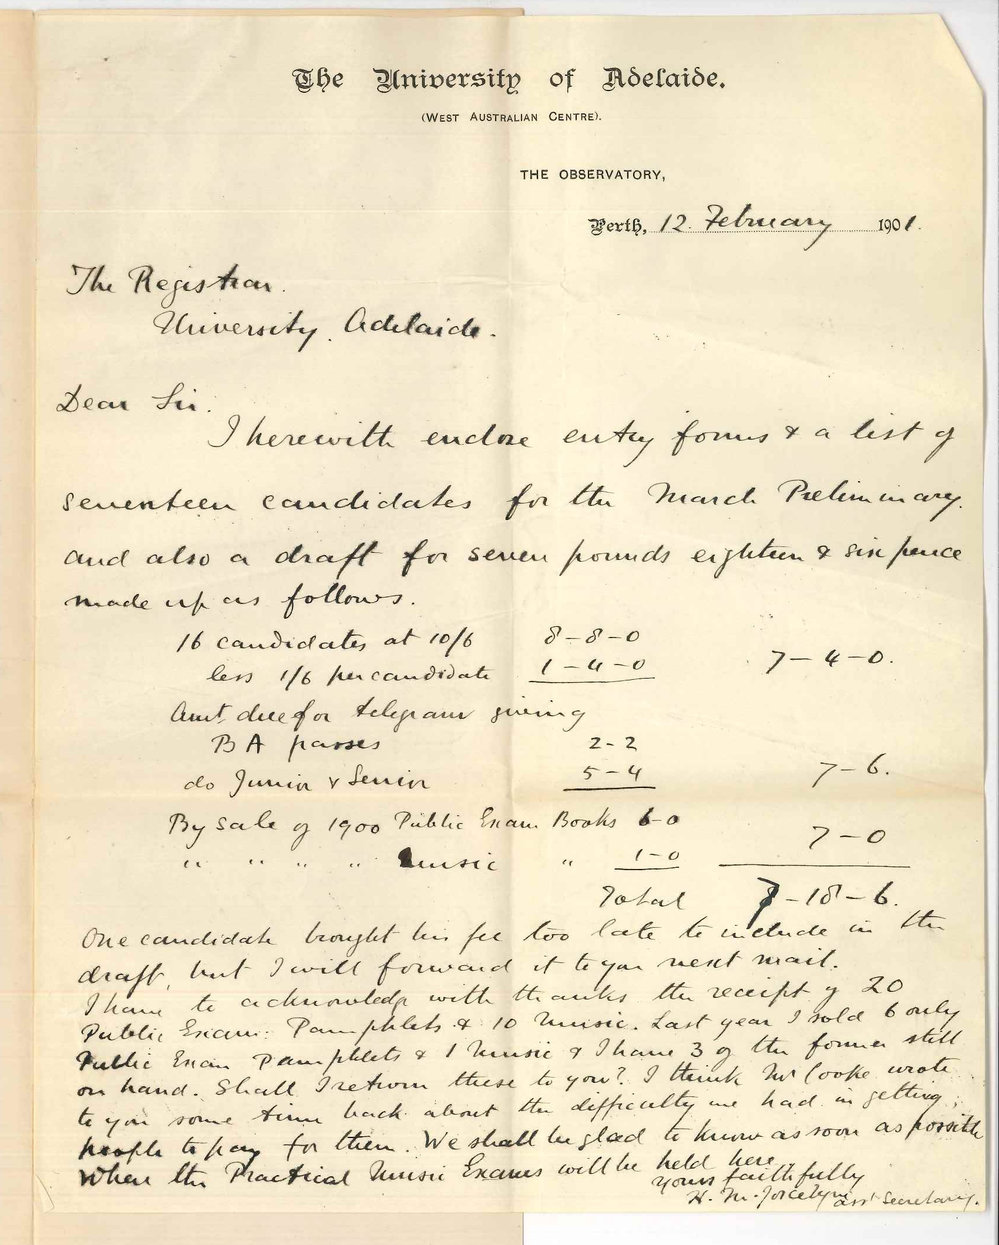 The University of Adelaide.
(WEST AUSTRALIAN CENTRE).
THE OBSERVATORY,
Perth, 12. February 1901.
The Registrar.
University. Adelaide.
Dear Sir.
I herewith enclose entry forms & a list of
seventeen candidates for the March Preliminary.
and also a draft for seven pounds eighteen & six pence
made up as follows.
16 candidates at 10/6 8-8-0
less 1/6 per candidate 1-4-0 7-4-0.
Amt. due for telegram giving
BA passes 2-2
do Junior & Senior 5-4 7-6.
By sale of 1900 Public Exam. Books 6-0
" " " " Music " 1-0 7-0
Total 7-18-6.
One candidate brought his fee too late to include in the
draft, but I will forward it to you next mail.
I have to acknowledge with thanks the receipt of 20
Public Exam: Pamphlets & 10 Music. Last year I sold 6 only
Public Exam Pamphlets & 1 Music & I have 3 of the former still
on hand. Shall I return these to you? I think Mr Cooke wrote
to you some time back about the difficulty we had in getting
people to pay for them. We shall be glad to know as soon as possible
when the Practical Music Exams will be held here
Yours faithfully
H. M. Jocelyn
asst Secretary.